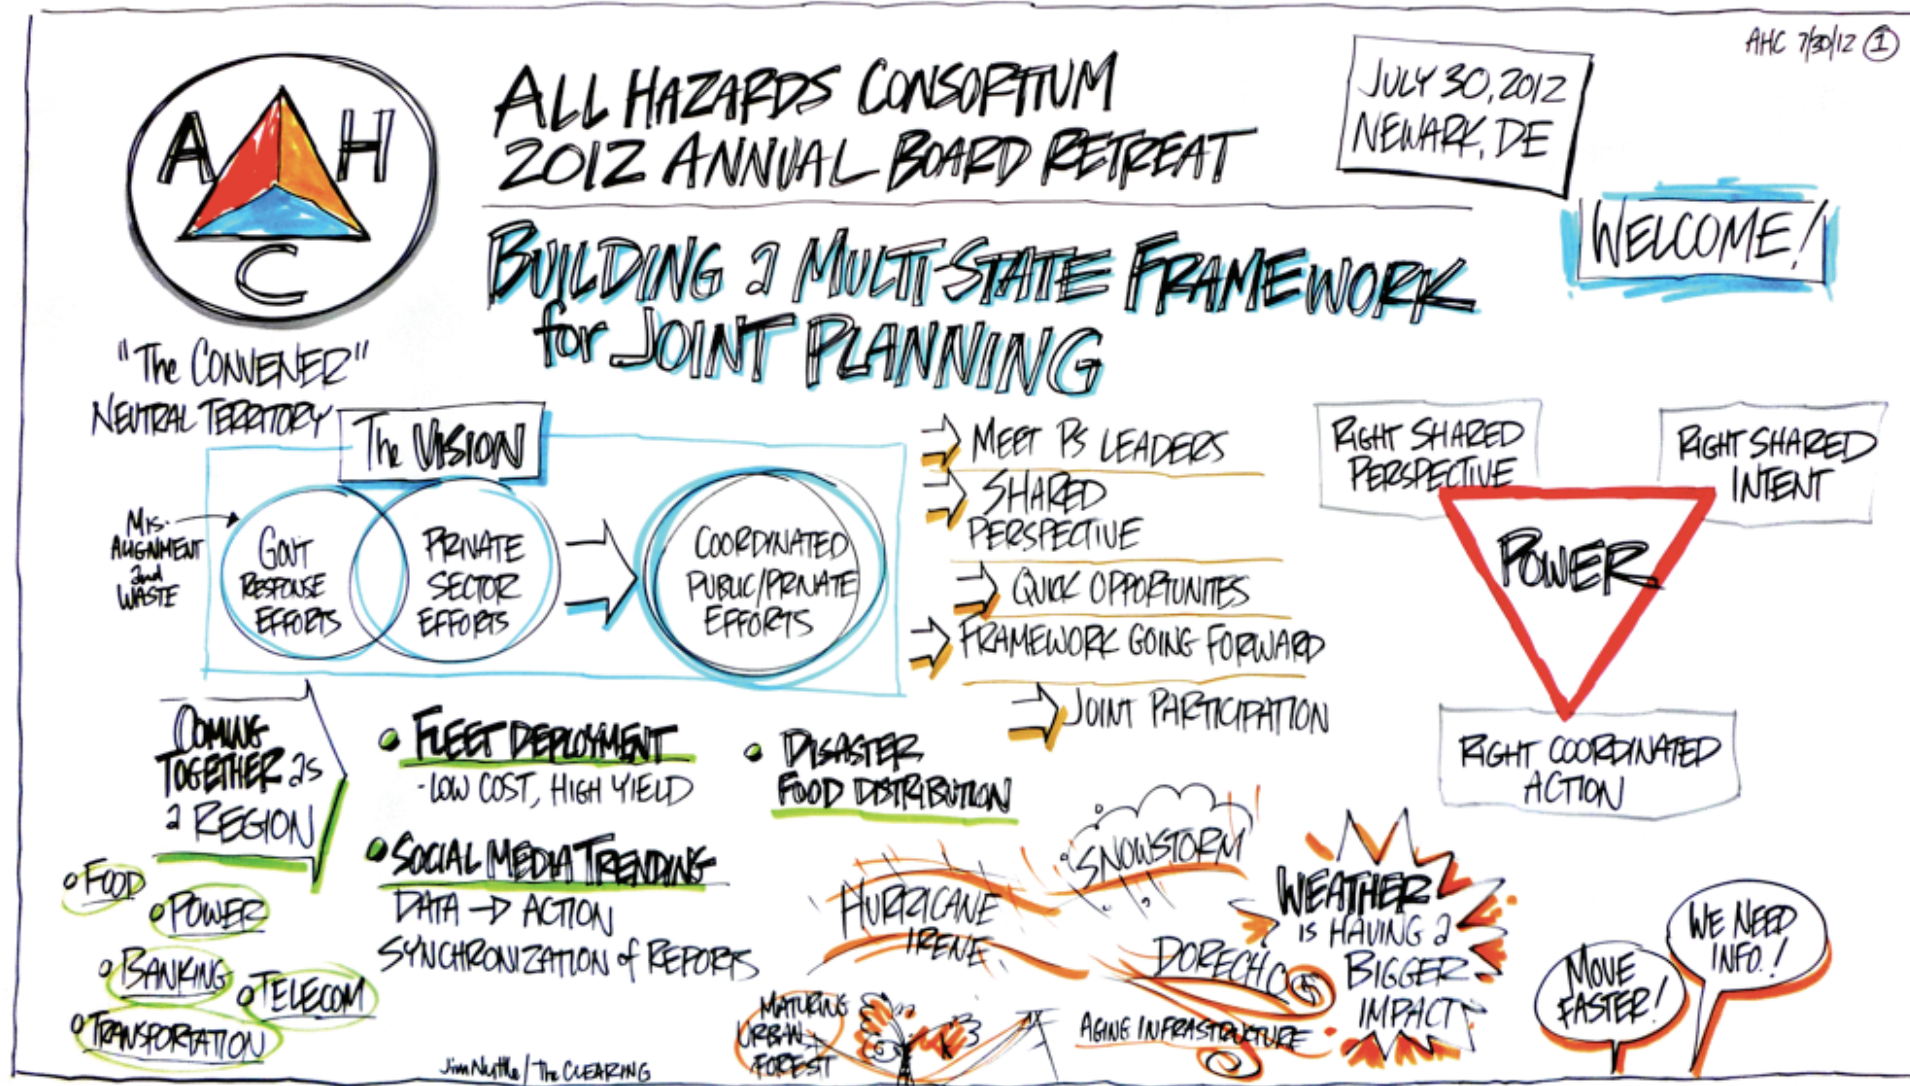 AHC 7/30/12 1
A H
C
ALL HAZARDS CONSORTIUM
2012 ANNUAL BOARD RETREAT
JULY 30, 2012
NEWARK, DE
WELCOME!
BUILDING a MULTI-STATE FRAMEWORK
for JOINT PLANNING
"The CONVENER"
NEUTRAL TERRITORY
The VISION
MIS-
ALIGNMENT
and
WASTE
GOV'T
RESPONSE
EFFORTS
PRIVATE
SECTOR
EFFORTS
COORDINATED
PUBLIC/PRIVATE
EFFORTS
MEET PS LEADERS
SHARED
PERSPECTIVE
QUICK OPPORTUNITES
FRAMEWORK GOING FORWARD
JOINT PARTICIPATION
RIGHT SHARED
PERSPECTIVE
RIGHT SHARED
INTENT
POWER
RIGHT COORDINATED
ACTION
COMING
TOGETHER as
a REGION
FOOD
POWER
BANKING
TELECOM
TRANSPORTATION
FLEET DEPLOYMENT
- LOW COST, HIGH YIELD
SOCIAL MEDIA TRENDING
DATA → ACTION
SYNCHRONIZATION of REPORTS
DISASTER
FOOD DISTRIBUTION
HURRICANE
IRENE
SNOWSTORM
DORECHO
MATURING
URBAN
FOREST
AGING INFRASTRUCTURE
WEATHER
IS HAVING a
BIGGER
IMPACT
MOVE
FASTER!
WE NEED
INFO.!
Jim Nuttle / The CLEARING